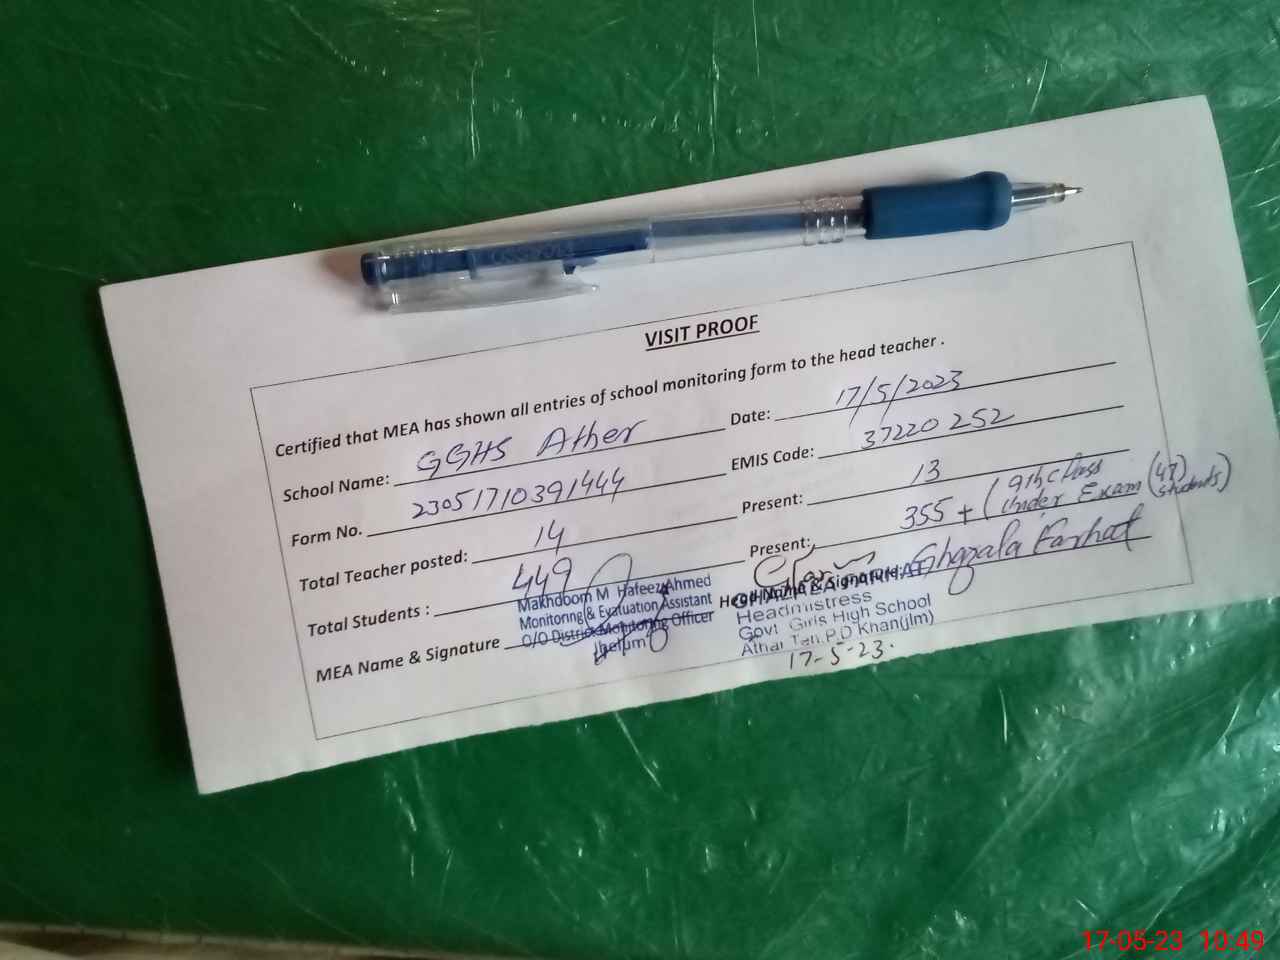 VISIT PROOF
Certified that MEA has shown all entries of school monitoring form to the head teacher .
School Name: GGHS Ather Date: 17/5/2023
Form No. 23051710391444 EMIS Code: 37220252
Total Teacher posted: 14 Present: 13
Total Students : 449 Present: 355 + (9th class Under Exam (47) students)
MEA Name & Signature Head Name & Signature: Ghazala Farhat
Makhdoom M Hafeez Ahmed
Monitoring & Evaluation Assistant
O/O District Monitoring Officer
Jhelum
GHAZALA FARHAT
Headmistress
Govt Girls High School
Athar Teh.P.D Khan(jlm)
17-5-23.
17-05-23 10:49